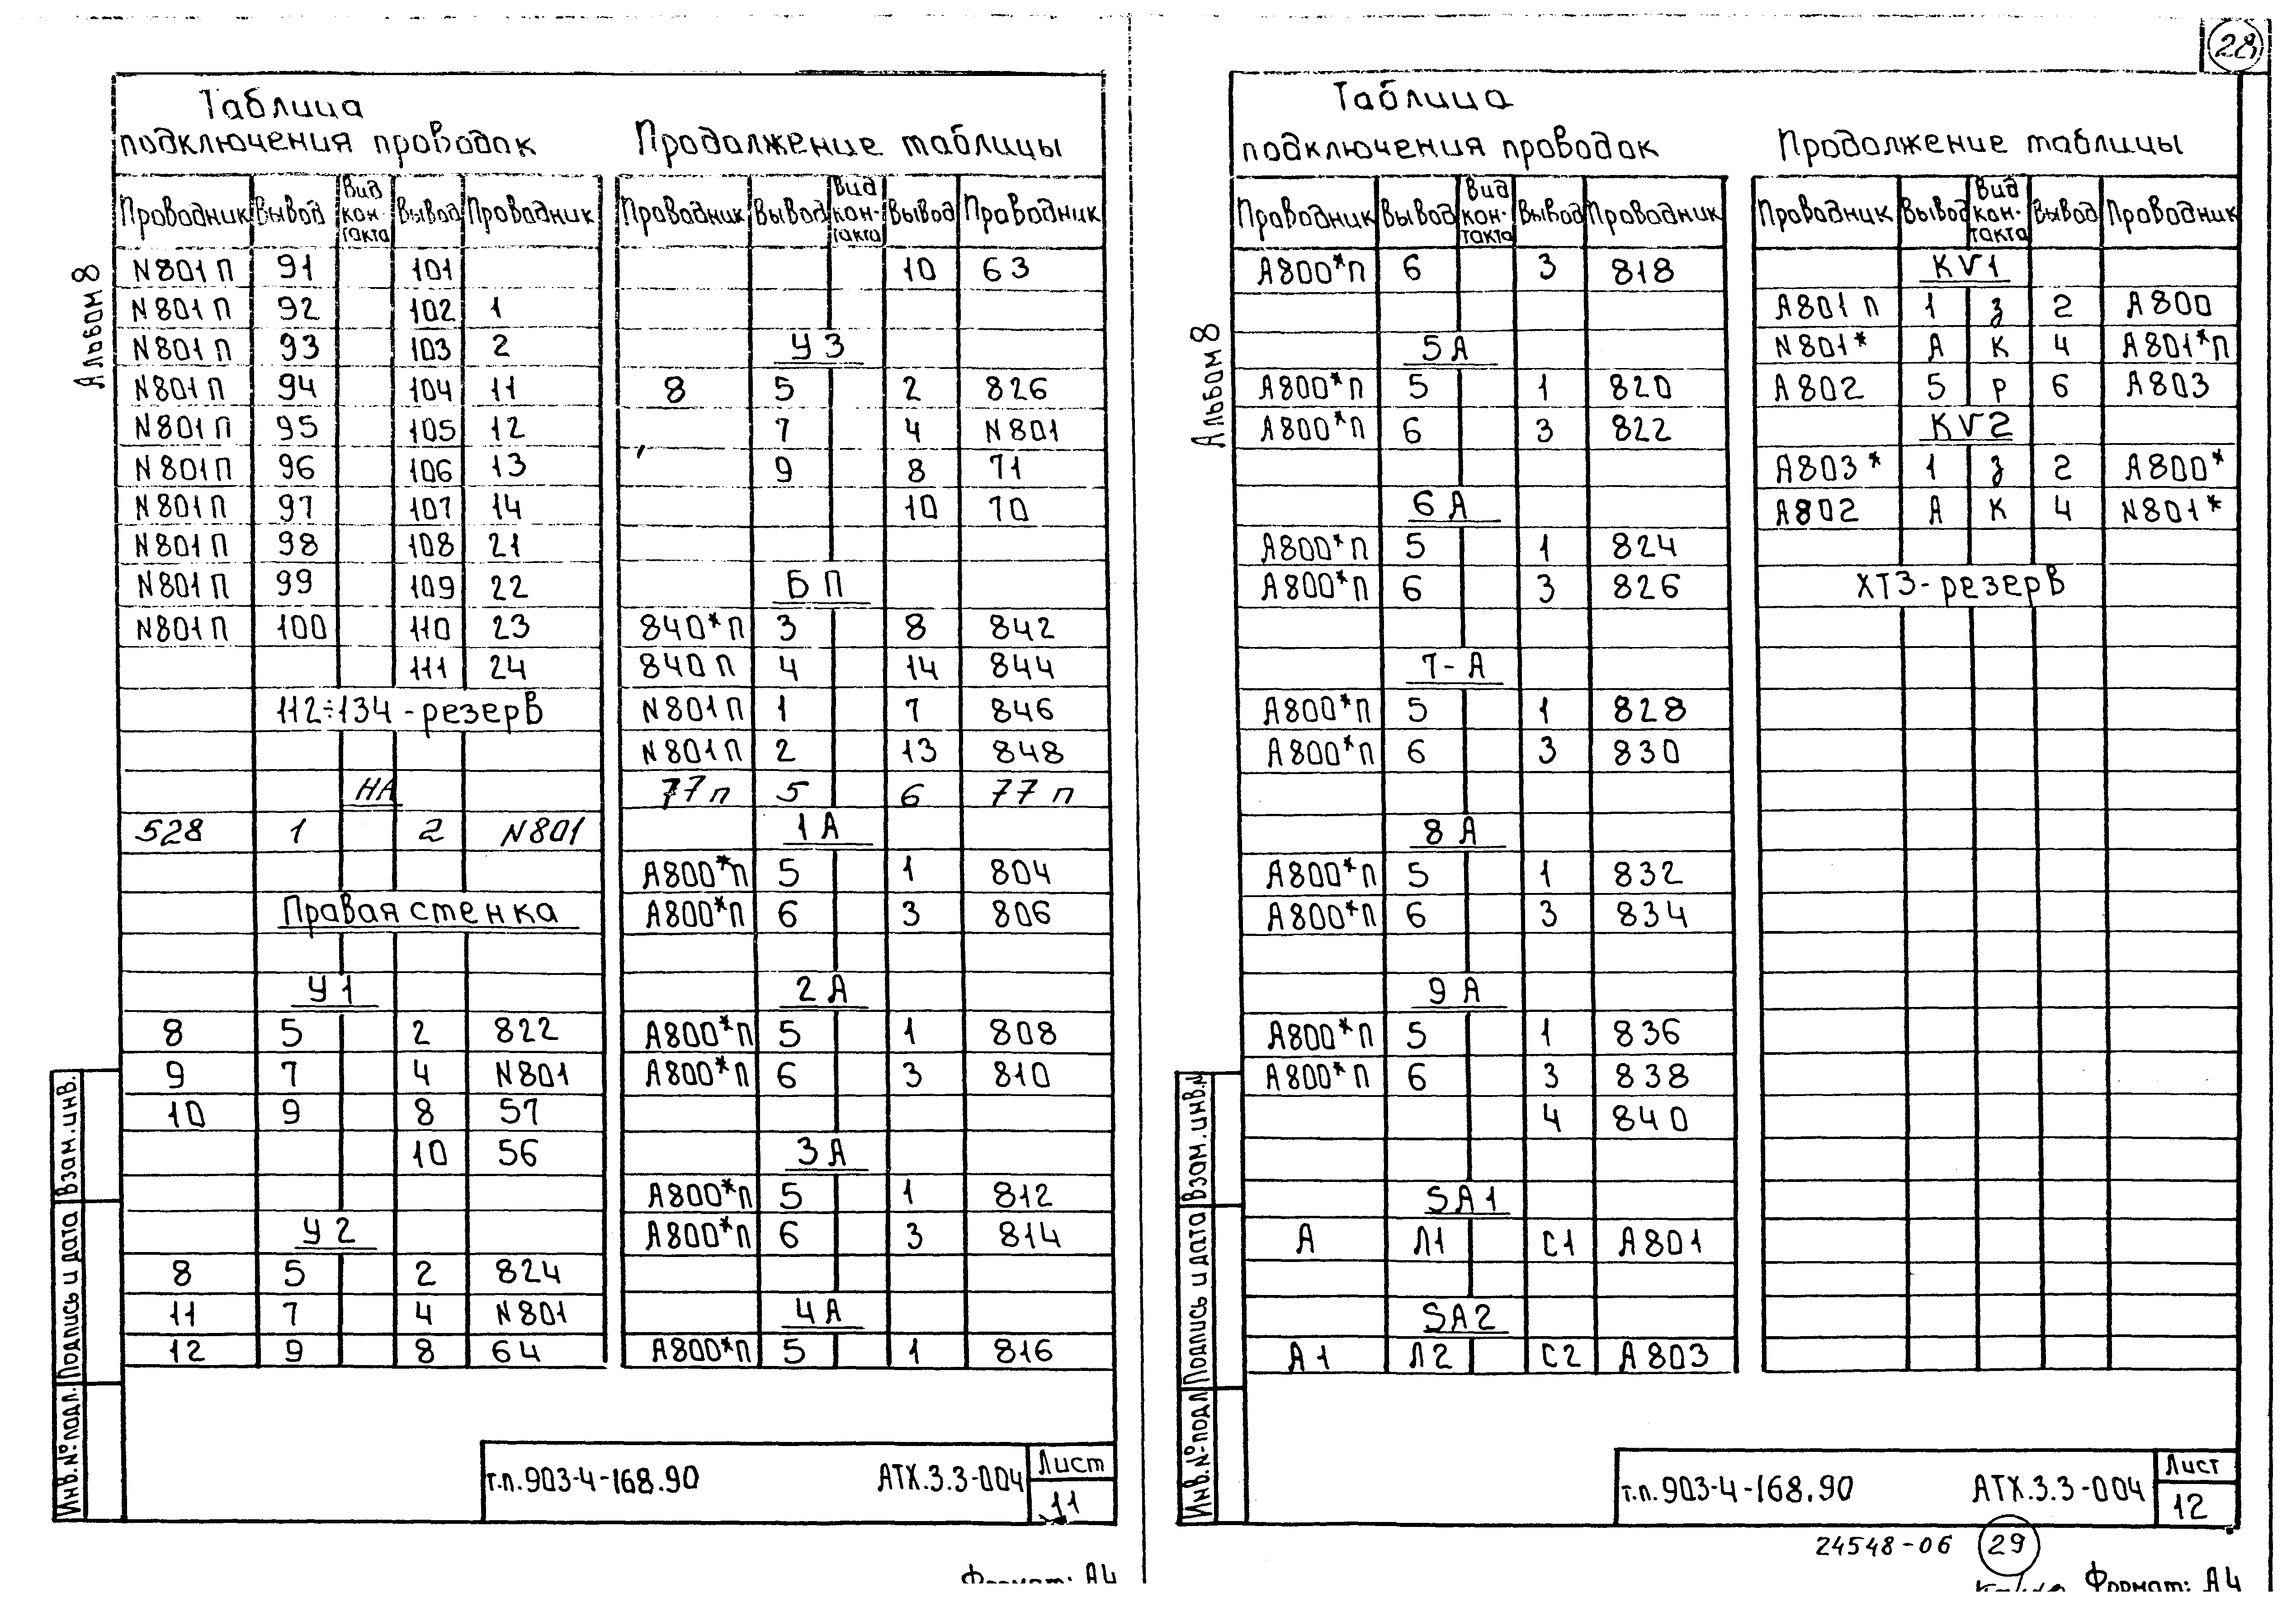 28
Альбом 8
Таблица
подключения проводок
Проводник Вывод Вид контакта Вывод Проводник
N801П 91 101
N801П 92 102 1
N801П 93 103 2
N801П 94 104 11
N801П 95 105 12
N801П 96 106 13
N801П 97 107 14
N801П 98 108 21
N801П 99 109 22
N801П 100 110 23
111 24
112÷134-резерв
НА
528 1 2 N801
Правая стенка
У1
8 5 2 822
9 7 4 N801
10 9 8 57
10 56
У2
8 5 2 824
11 7 4 N801
12 9 8 64
Продолжение таблицы
Проводник Вывод Вид контакта Вывод Проводник
10 63
У3
8 5 2 826
7 4 N801
9 8 71
10 70
БП
840*П 3 8 842
840П 4 14 844
N801П 1 7 846
N801П 2 13 848
77п 5 6 77п
1А
А800*П 5 1 804
А800*П 6 3 806
2А
А800*П 5 1 808
А800*П 6 3 810
3А
А800*П 5 1 812
А800*П 6 3 814
4А
А800*П 5 1 816
Инв.№подл. Подпись и дата Взам.инв.
т.п.903-4-168.90 АТХ.3.3-004 Лист
11
Формат: А4
Альбом 8
Таблица
подключения проводок
Проводник Вывод Вид кон-такта Вывод Проводник
А800*П 6 3 818
5А
А800*П 5 1 820
А800*П 6 3 822
6А
А800*П 5 1 824
А800*П 6 3 826
7-А
А800*П 5 1 828
А800*П 6 3 830
8А
А800*П 5 1 832
А800*П 6 3 834
9А
А800*П 5 1 836
А800*П 6 3 838
4 840
SA1
А Л1 С1 А801
SA2
А1 Л2 С2 А803
Продолжение таблицы
Проводник Вывод Вид кон-такта Вывод Проводник
KV1
А801П 1 з 2 А800
N801* А К 4 А801*П
А802 5 Р 6 А803
KV2
А803* 1 з 2 А800*
А802 А К 4 N801*
ХТ3-резерв
Инв.№подл. Подпись и дата Взам.инв.№
т.п.903-4-168.90 АТХ.3.3-004 Лист
12
24548-06 29
Формат: А4